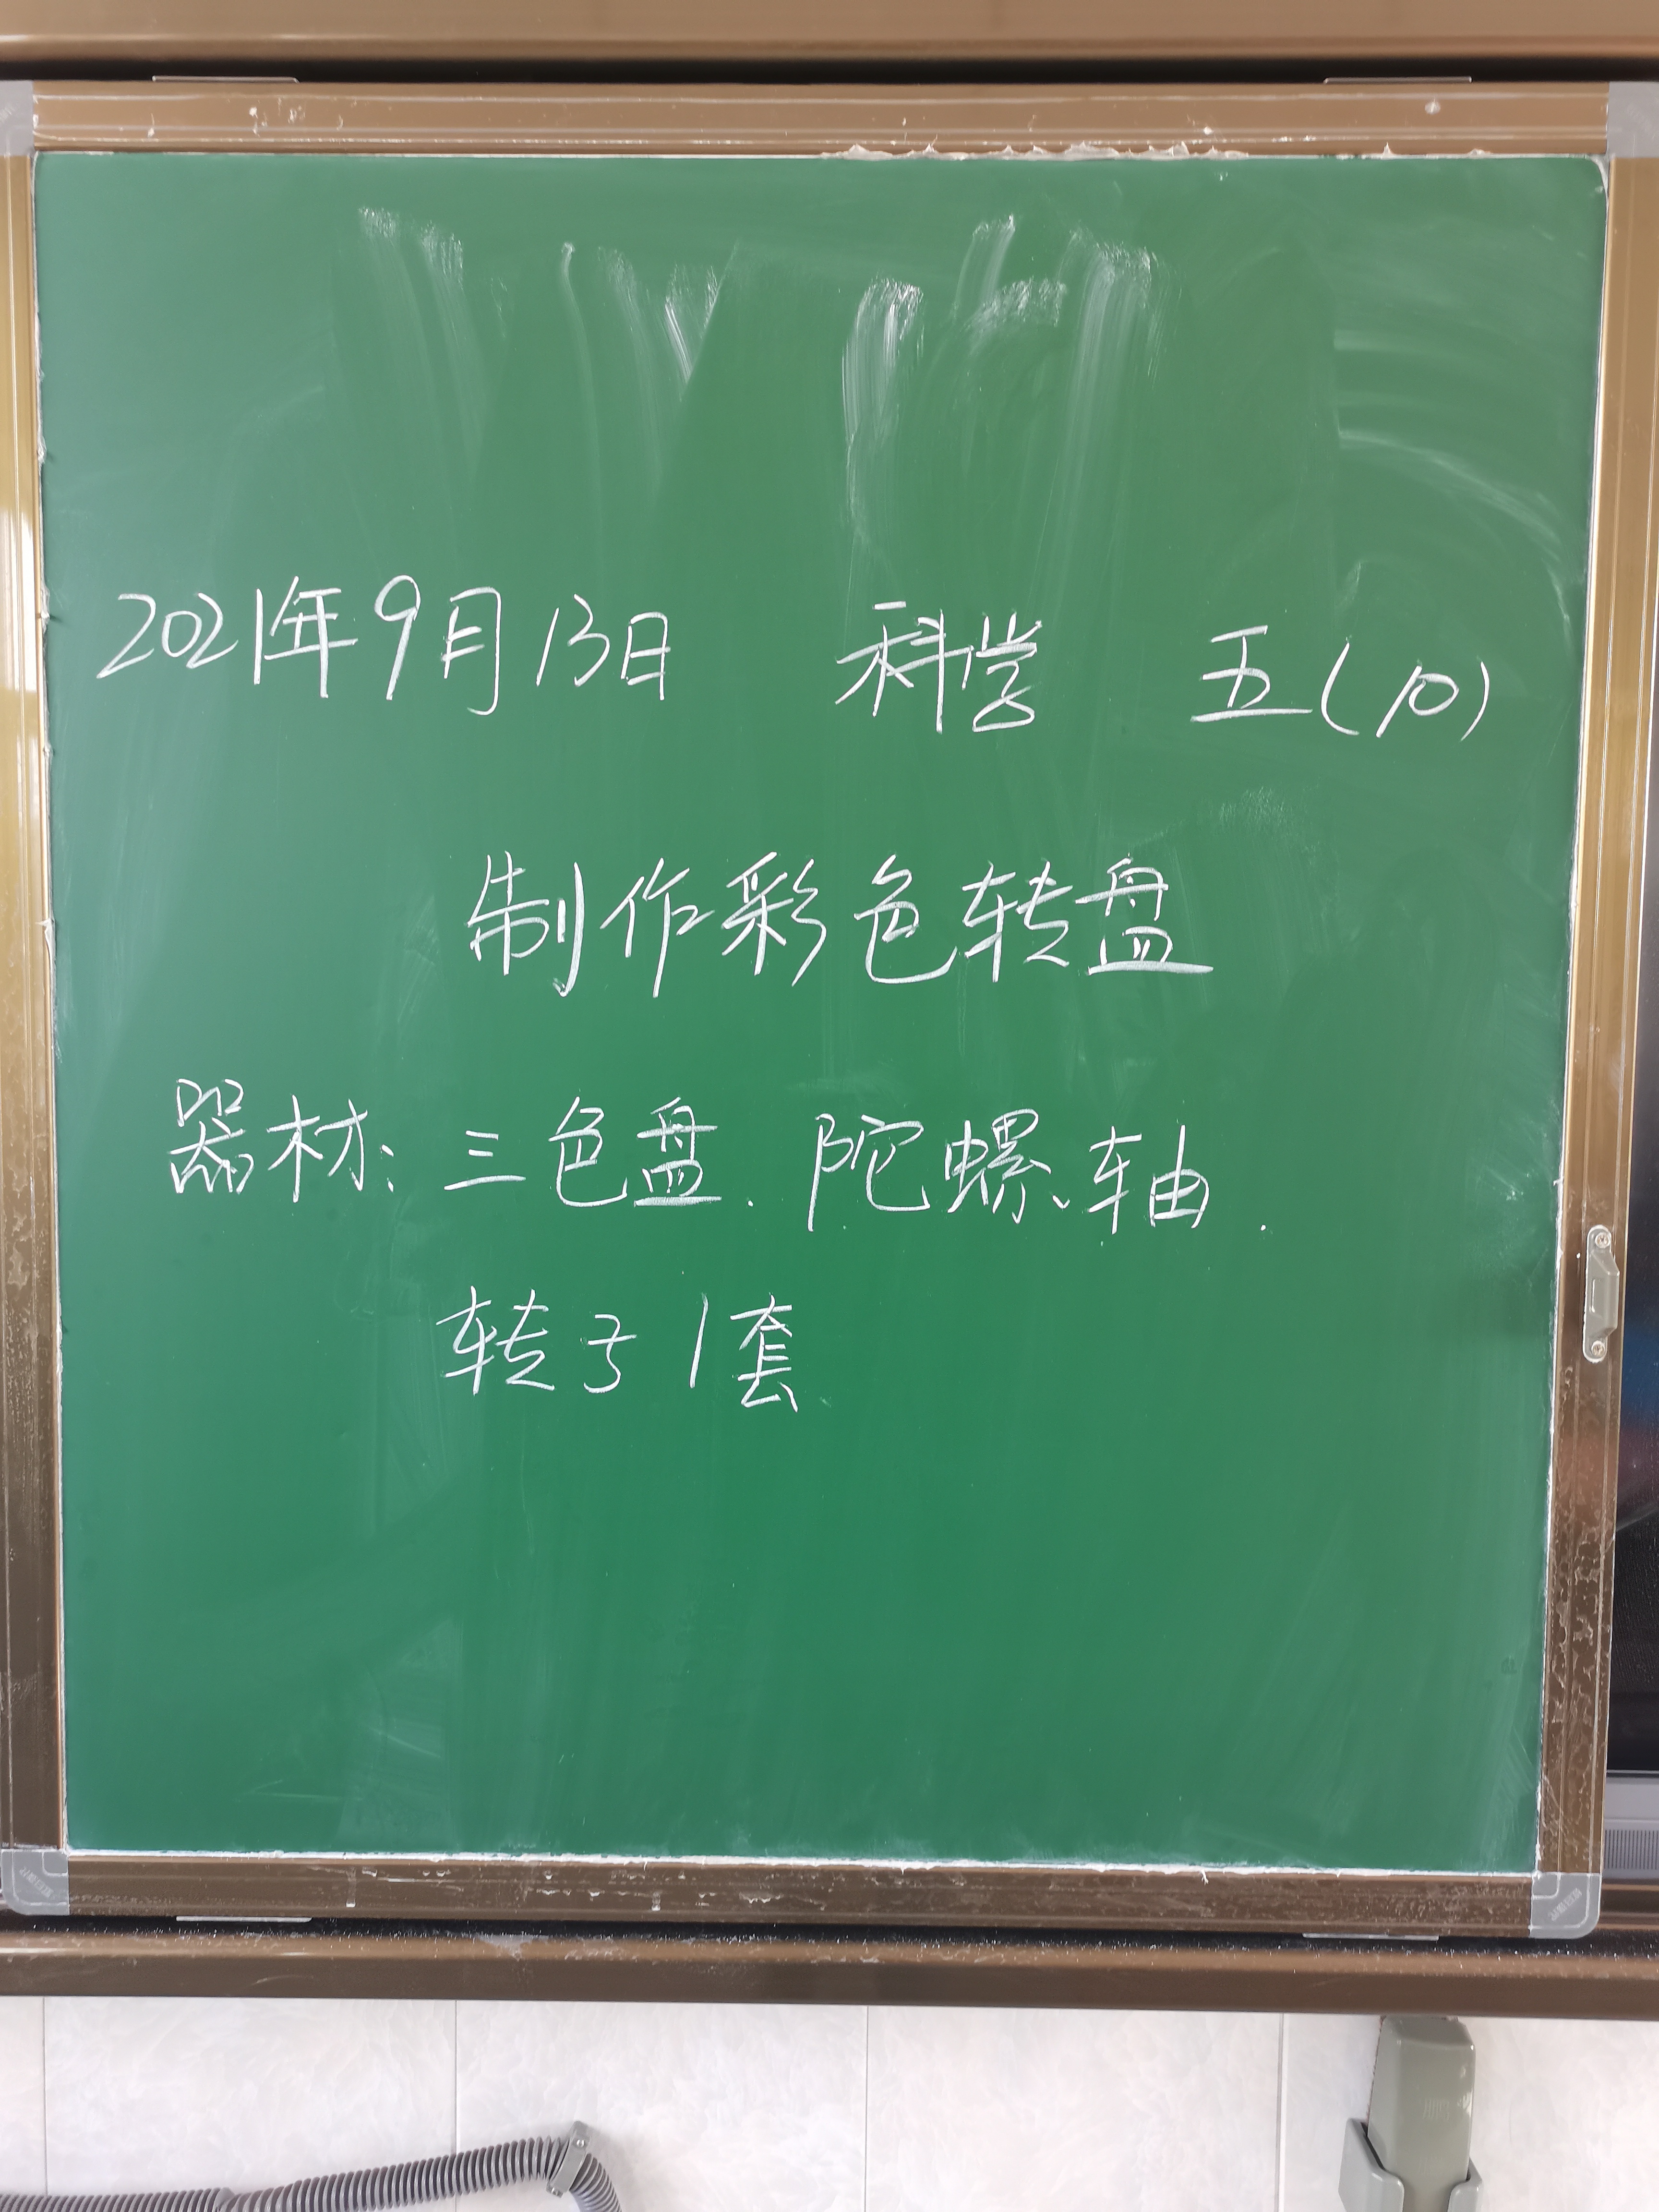 2021年9月13日 科学 五(10)
制作彩色转盘
器材:三色盘、陀螺、轴、
转子1套